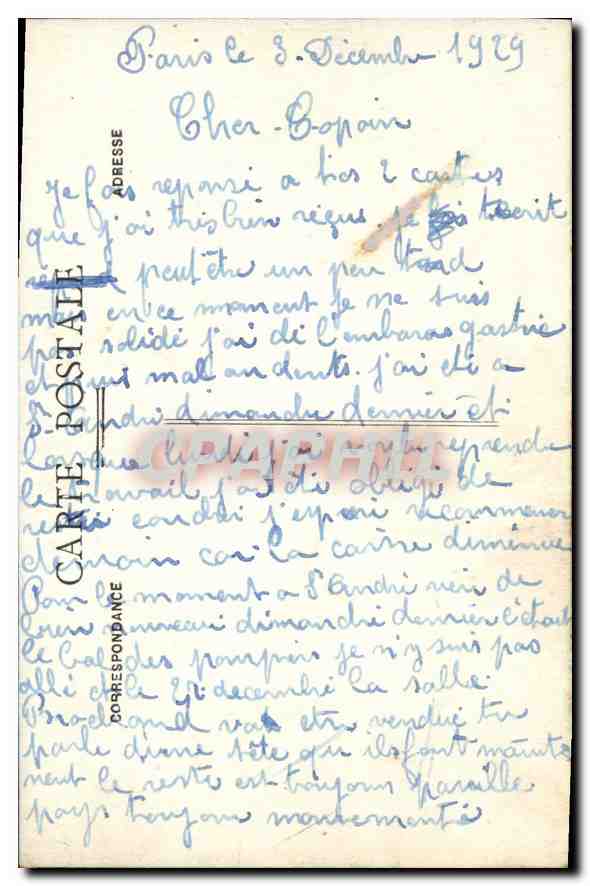 Paris le 3 Décembre 1929
Cher Copain
Je fais reponse a tes 2 cartes
que j'ai tres bien reçus. je t'ecrit
peut être un peu tard
mais en ce moment je ne suis
pas solide j'ai de l'embaras gastrie
et puis mal au dents. j'ai eté a
St André dimanche dernier et
lorsque lundi j'ai voulu reprendre
le travail j'ai eté obligé de
couché j'esperé recommencer
demain car la caisse diminue
Pour le moment a St André rien de
bien nouveau dimanche dernier c'était
le bal des pompiers je n'y suis pas
allé et le 21 decembre la salle
Brochand va etre vendue tu
parle d'une tête qu'ils font mainte
nant le reste est toujours pareille
pays toujours mouvementé
CARTE POSTALE
ADRESSE
CORRESPONDANCE
CPAPHIL